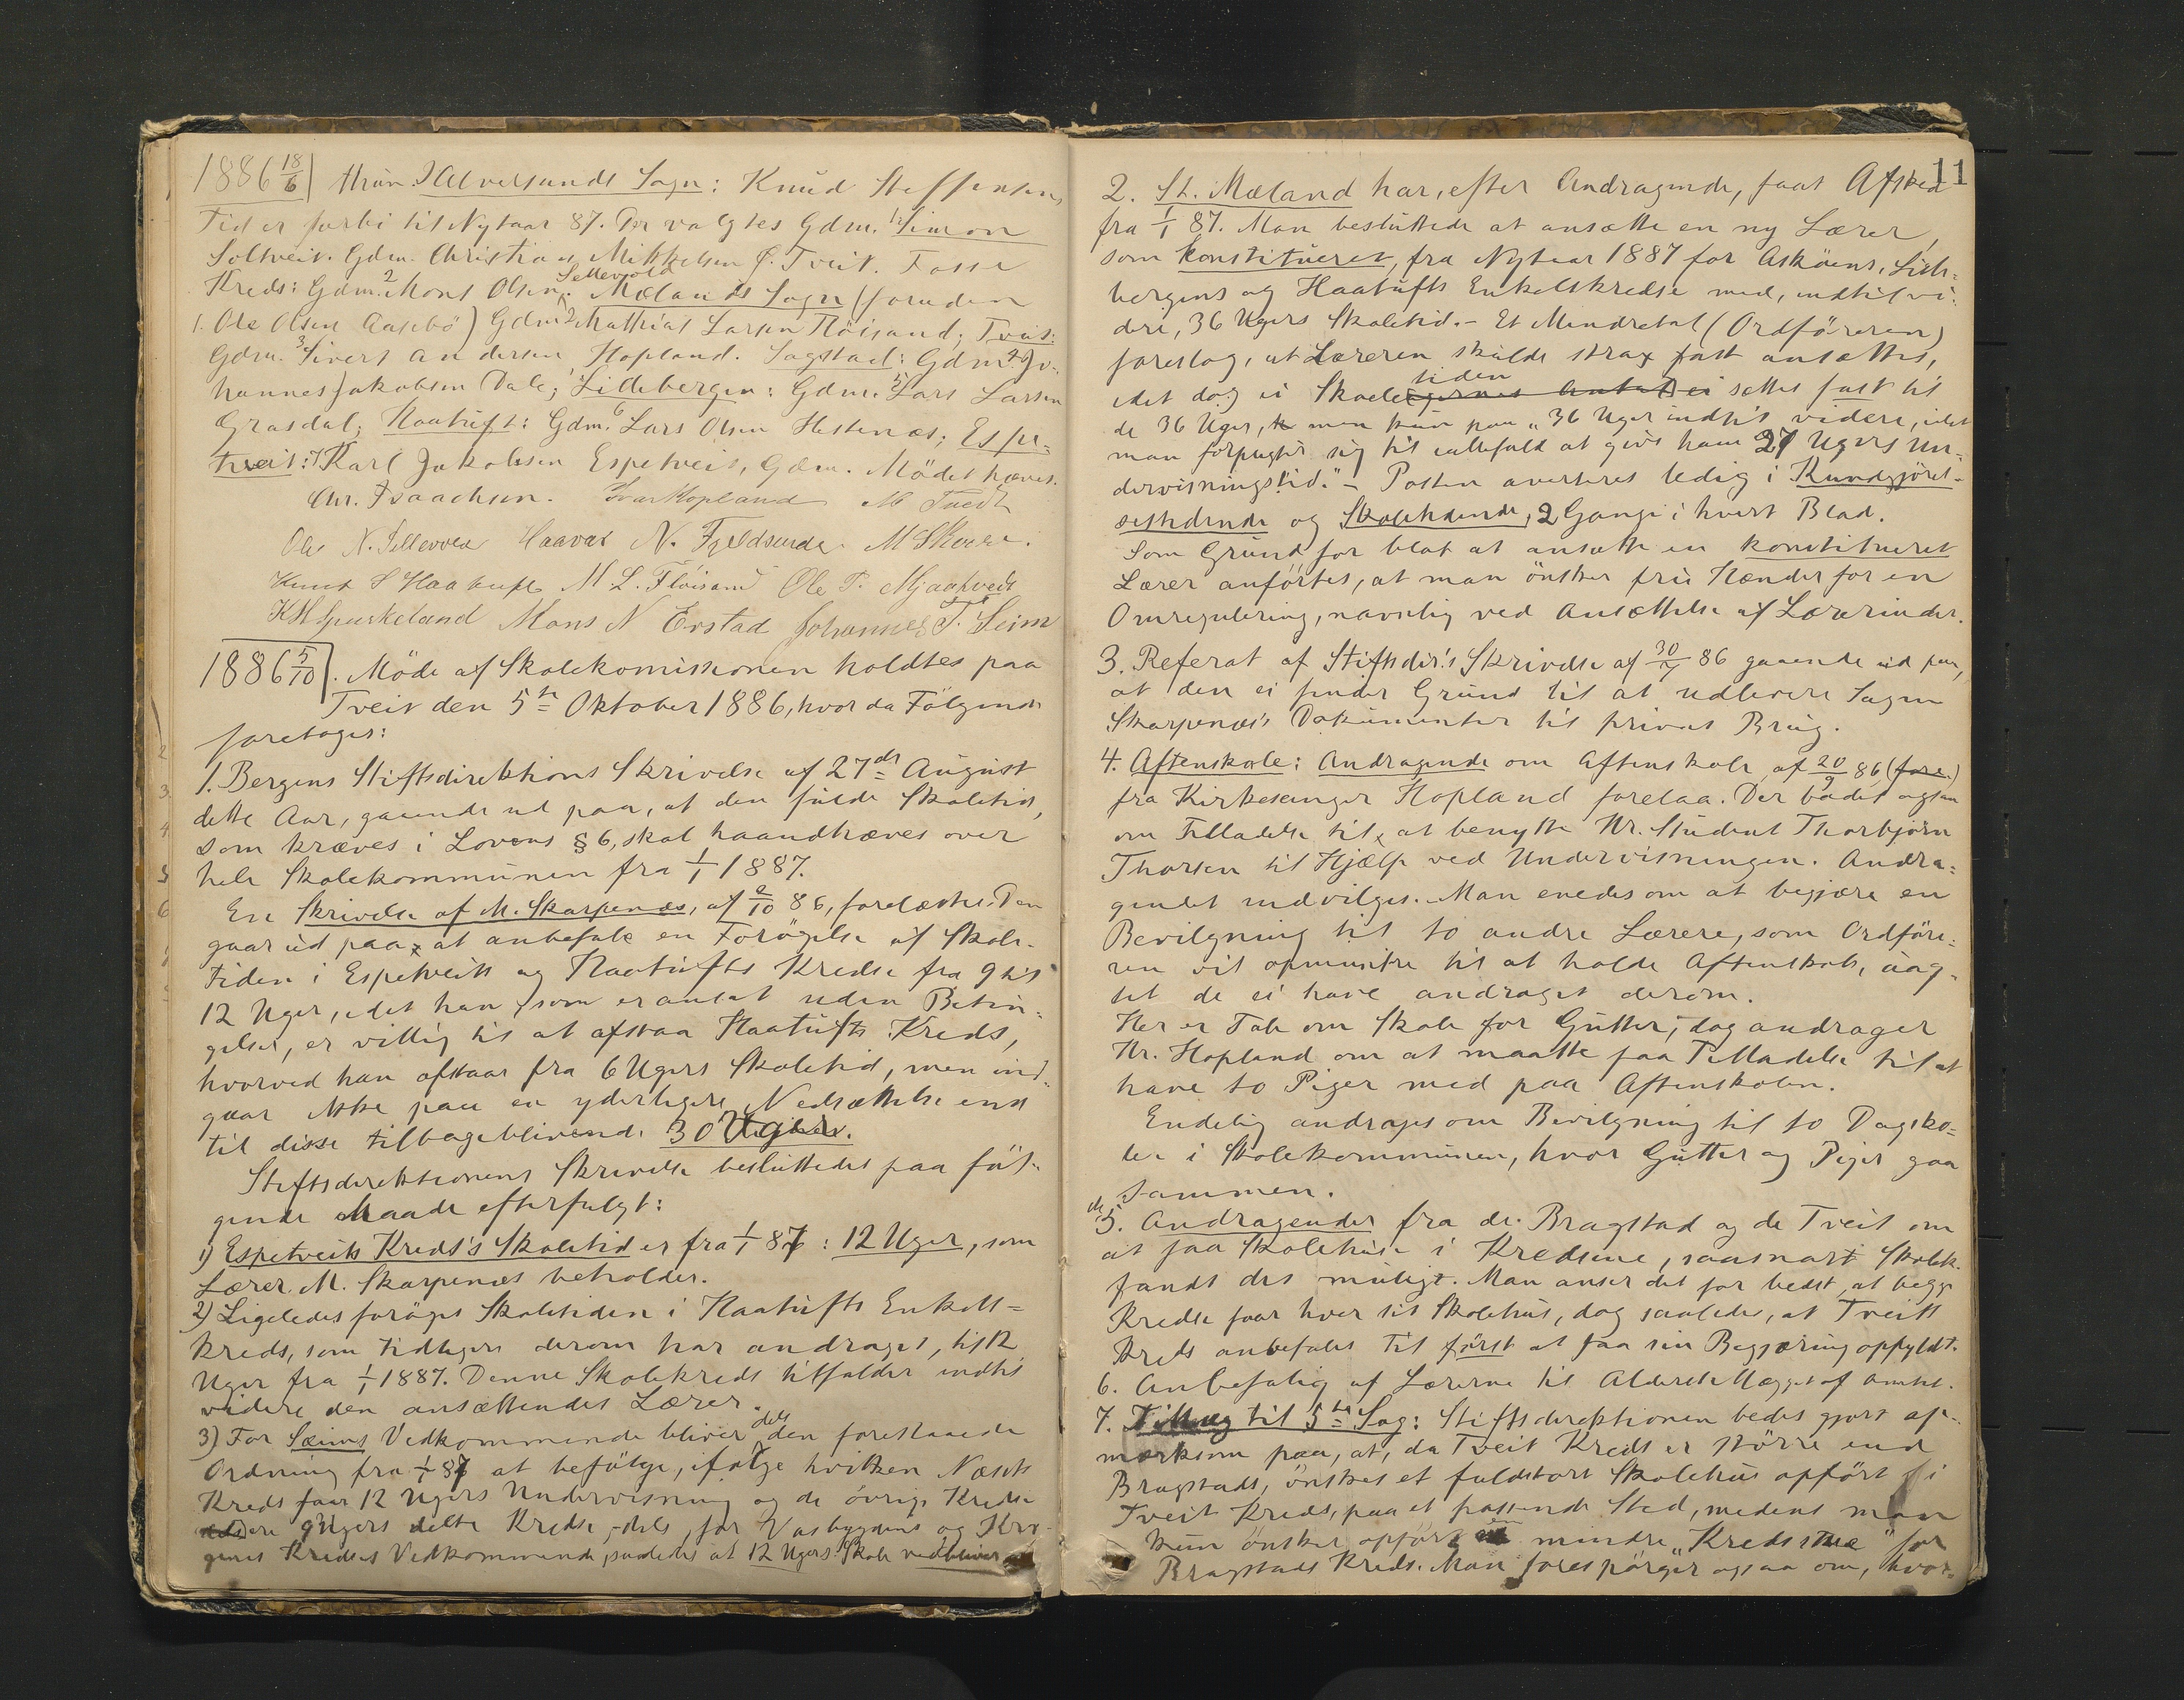 1886 18/6 thun. Alversunds Sogn: Knud Steffensens
Tid er forbi til Nytaar 87. Der valgtes Gdm. 1. Simon
Soltveit. Gdm. Christian Mikkelsen Ø. Tveit. Fosse
Kreds: Gdm. 2 Mons Olsen Sellevold. Mælands Sogn (foruden
1. Ole Olsen Aasebö) Gdm. 2 Mathias Larsen Flöisand; Tveit:
Gdm. 3 Sivert Andersen Hopland. Sagstad: Gdm. 4 Jo-
hannes Jakobsen Dale; Lillebergen: Gdm. 5 Lars Larsen
Grasdal; Haatuft: Gdm. 6 Lars Olsen Hestenes; Espe-
tveit: 7 Karl Jakobsen Espetveit, Gdm. Mödet hævet.
Chr. Isaachsen. Ivar Hopland M Tvedt
Ole N. Sellevold Haavar N. Fjeldsende. M Skaar.
Knut S Haatuft M. L. Flöisand Ole P. Mjaatvedt
K H Spurkeland Mons N Erstad Johannes T. Seim
1886 5/10. Möde af Skolekomissionen holdtes paa
Tveit den 5te Oktober 1886, hvor da Fölgende
foretoges:
1. Bergens Stiftsdirektions Skrivelse af 27de August
dette Aar, gaaende ud paa, at den fulde Skoletid,
som kræves i Lovens § 6, skal haandhæves over
hele Skolekommunen fra 1/1 1887.
En Skrivelse af M. Skarpenes, af 2/10 86, forelæstes. Den
gaar ud paa at anbefale en Forögelse af Skole-
tiden i Espetveits og Haatufts Kredse fra 9 til
12 Uger, idet han, som er ansat uden Betin-
gelser, er villig til at afstaa Haatufts Kreds,
hvorved han afstaar fra 6 Ugers Skoletid, men ind-
gaar ikke paa en yderligere Nedsættelse end
til disse tilbageblivende 30 Uger.
Stiftsdirektionens Skrivelse besluttedes paa föl-
gende Maade efterfulgt:
1) Espetveits Kreds's Skoletid er fra 1/1 87: 12 Uger, som
Lærer M. Skarpenes beholder.
2) Ligeledes foröges Skoletiden i Haatufts Enkelt-
kreds, som tidligere derom har andraget, til 12
Uger fra 1/1 1887. Denne Skolekreds tilfalder indtil
videre den ansættendes Lærer.
3) For Seims Vedkommende bliver dels den forestaaede
Ordning fra 1/1 87 at befölge, ifölge hvilken Næsets
Kreds faar 12 Ugers Undervisning og de övrige Kredse
9 Ugers delte Kredse, dels, for Vasbygdens og Kro-
genes Kredses Vedkommende, saaledes at 12 Ugers Skole vedbliver
11
2. St. Mæland har, efter Andragende, faaet Afsked
fra 1/1 87. Man besluttede at ansætte en ny Lærer,
som konstitueret, fra Nytaar 1887 for Asköens, Lille-
bergens og Haatufts Enkeltkredse med, indtil vi-
dere, 36 Ugers Skoletid. - Et Mindretal (Ordföreren)
foreslog, at Læreren skulde strax fast ansættes,
idet dog ei Skoletiden settes fast til
de 36 Uger, men kun paa "36 Uger indtil videre, idet
man forpligter sig til iallefald at give ham 27 Ugers Un-
dervisningstid." - Posten averteres ledig i Kundgjörel-
sestidende og Skoletidende, 2 Gange i hvert Blad.
Som Grund for blot at ansætte en konstitueret
Lærer anförtes, at man önsker frie Hænder for en
Omregulering, navnlig ved Ansættelse af Lærerinder.
3. Referat af Stiftsdir.'s Skrivelse af 30/7 86 gaaende ud paa,
at den ei finder Grund til at udlevere Sagen
Skarpenes's Dokumenter til privat Brug.
4. Aftenskole: Andragende om Aftenskole af 20/9 86 (fore.)
fra Kirkesanger Hopland forelaa. Der bades ogsaa
om Tilladelse til, at benytte Hr. Student Thorbjörn
Thorsen til Hjælp ved Undervisningen. Andra-
gendet indvilges. Man enedes om at begjære en
Bevilgning til to andre Lærere, som Ordföre-
ren vil opmuntre til at holde Aftenskole, uag-
tet de ei have andraget derom.
Her er Tale om Skole for Gutter; dog andrager
Hr. Hopland om at maatte faa Tilladelse til at
have to Piger med paa Aftenskolen.
Endelig andrages om Bevilgning til to Dagsko-
ler i Skolekommunen, hvor Gutter og Piger gaa
sammen.
5. Andragender fra de Bragstad og de Tveit om
at faa Skolehuse i Kredsene, saasnart Skolek.
fandt det muligt. Man anser det for bedst, at begge
Kredse faar hver sit Skolehus, dog saaledes, at Tveits
Kreds anbefales til först at faa sin Begjæring opfyldt.
6. Anbefalig af Lærerne til Alderstillægget af Amtet.
7. Tillæg til 5te Sag: Stiftsdirektionen bedes gjort op-
mærksom paa, at, da Tveit Kreds er större end
Bragstads, önskes et fuldstort Skolehus opfört i
Tveit Kreds, paa et passende Sted, medens man
kun önsker opfört en mindre "Kredsstue" for
Bragstads Kreds. Man forespörger ogsaa om, hvor-